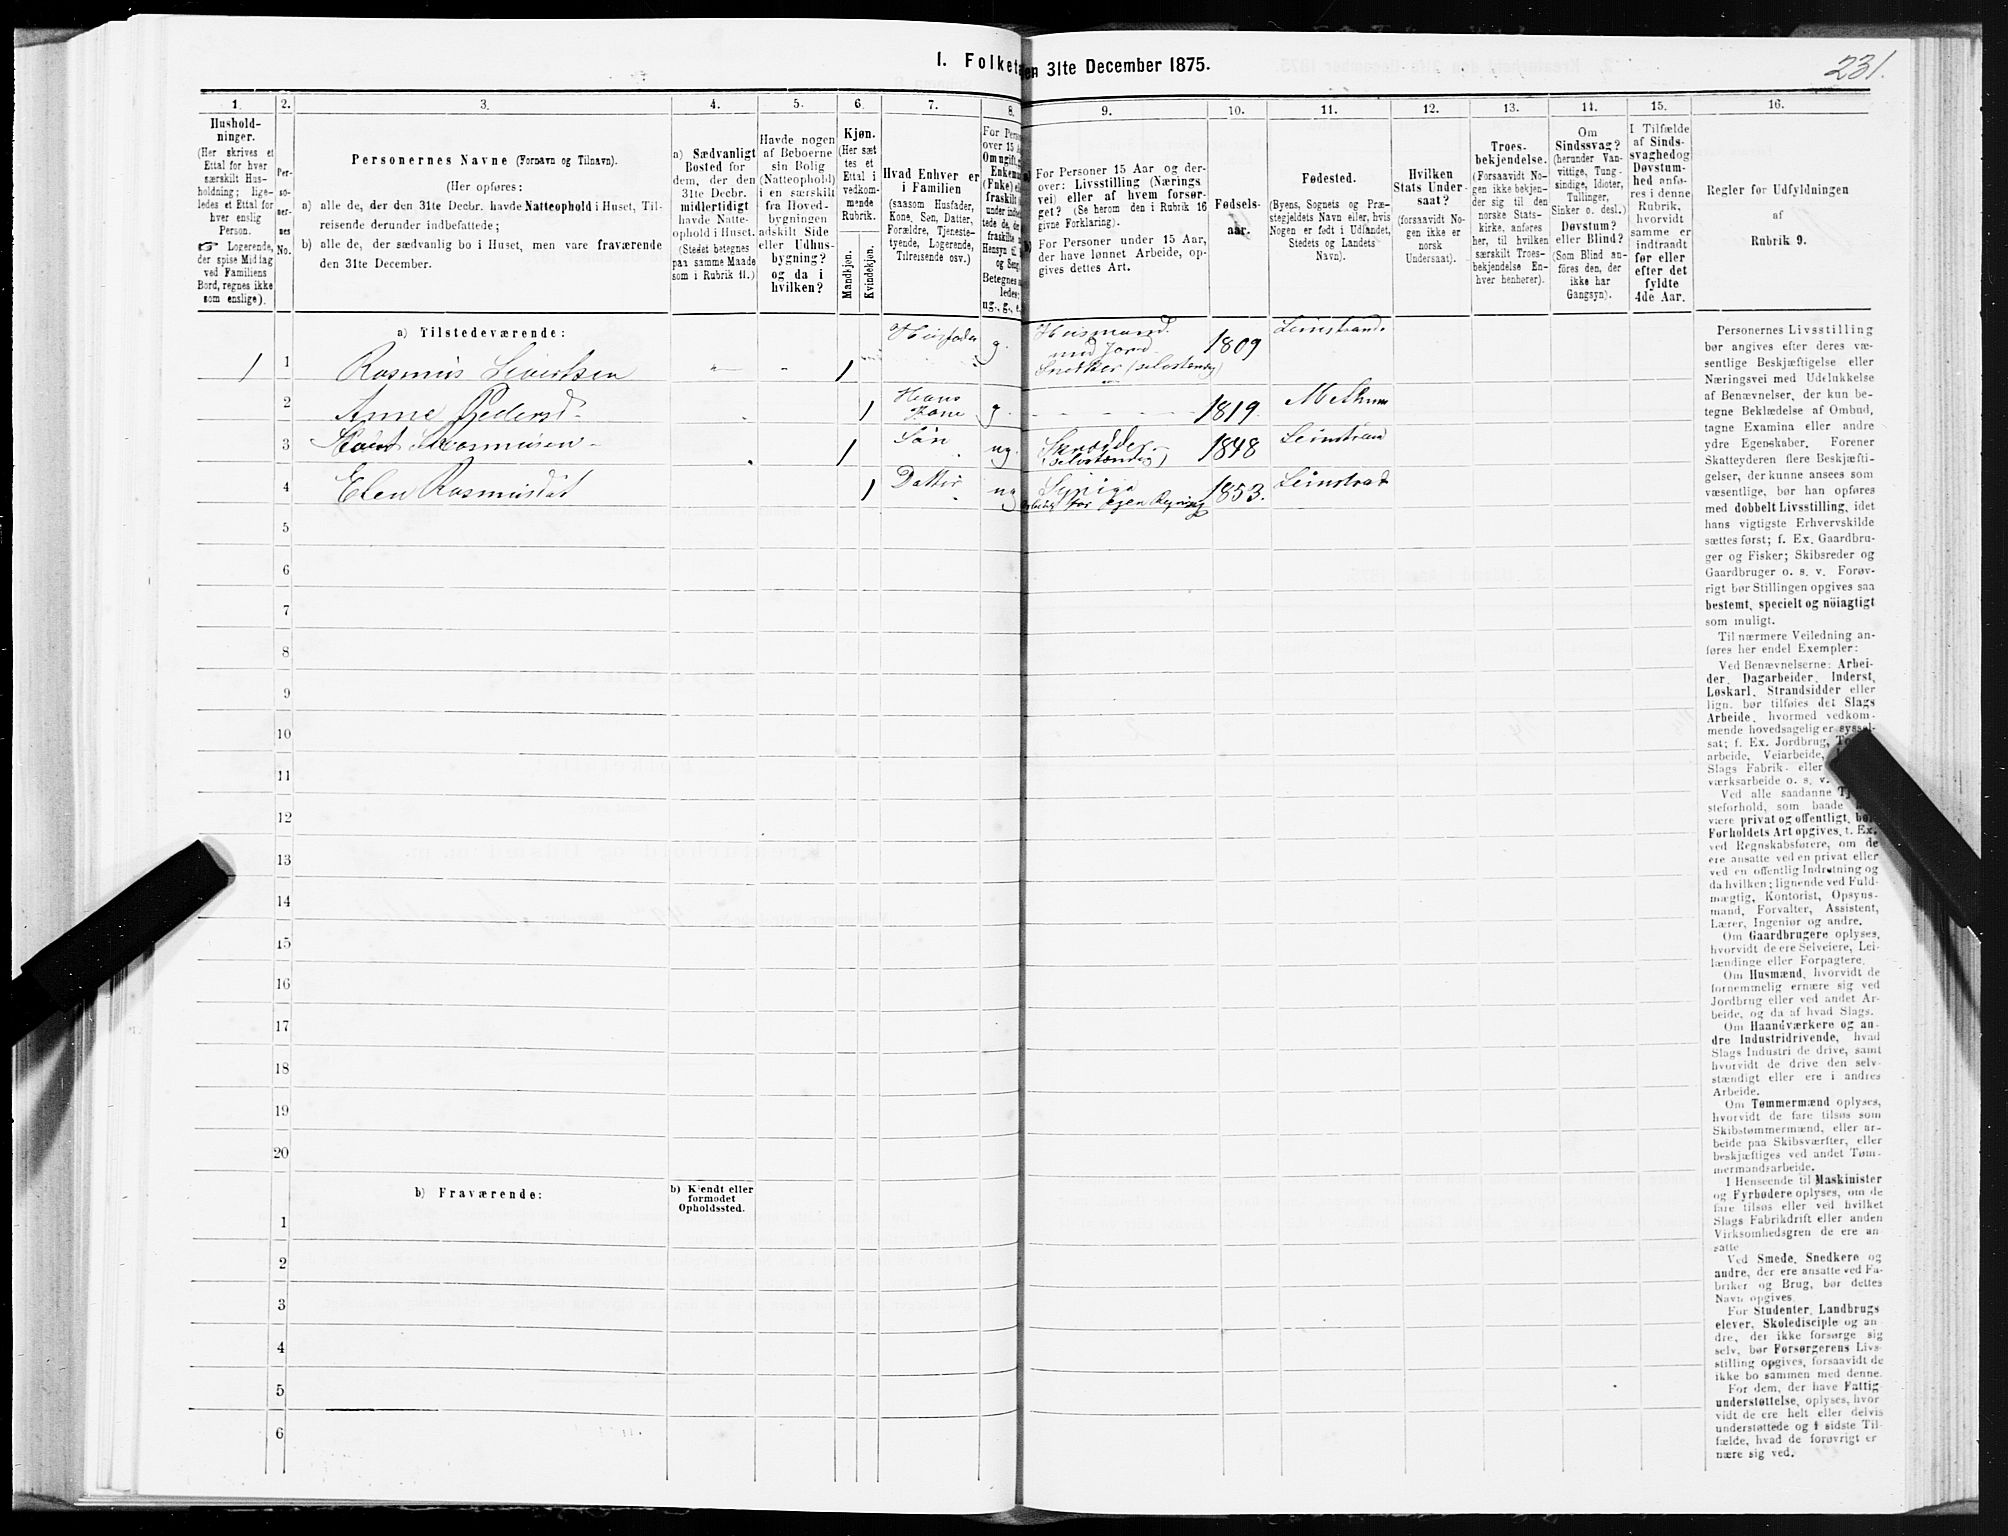 231.
I. Folketæ
en 31te December 1875.
1. 2. 3. 4. 5. 6. 7. 8. 9. 10. 11. 12. 13. 14. 15. 16.
Hushold-
ninger.
(Her skrives et
Ettal for hver
særskilt Hus-
holdning; lige-
ledes et Ettal for
hver enslig
Person.
☞ Logerende,
der spise Middag
ved Familiens
Bord, regnes ikke
som enslige).
Per-
so-
ner-
nes
No.
Personernes Navne (Fornavn og Tilnavn).
(Her opføres:
a) alle de, der den 31te Decbr. havde Natteophold i Huset, Til-
reisende derunder indbefattede;
b) alle de, der sædvanlig bo i Huset, men vare fraværende
den 31te December.
a) Sædvanligt
Bosted for
dem, der den
31te Decbr.
midlertidigt
havde Natte-
ophold i Huset.
(Stedet betegnes
paa samme Maade
som i Rubrik 11.)
Havde nogen
af Beboerne
sin Bolig
(Natteophold)
i en særskilt
fra Hoved-
bygningen
adskilt Side
eller Udhus-
bygning?
og da i
hvilken?
Kjøn.
(Her sæt
tes et
Ettal i
vedkom-
mende
Rubrik.
Mandkjøn.
Kvindekjøn.
Hvad Enhver er
i Familien
(saasom Husfader,
Kone, Søn, Datter,
Forældre, Tjeneste-
tyende, Logerende,
Tilreisende osv.)
For Perso
over 15 A
Om ugift, g
Enkeman
(Fnke) el
fraskilt
Betegnes s
ledes:
ug., g., e.
a) For Personer 15 Aar og der-
over: Livsstilling (Nærings
vei) eller af hvem forsør-
get? (Se herom den i Rubrik 16
givne Forklaring).
b) For Personer under 15 Aar,
der have lønnet Arbeide, op-
gives dettes Art.
Fødsels-
aar.
Fødested.
(Byens, Sognets og Præ-
stegjeldets Navn eller, hvis
Nogen er født i Udlandet,
Stedets og Landets
Navn).
Hvilken
Stats Under-
saat?
(forsaavidt No-
gen ikke er
norsk
Undersaat).
Troes-
bekjendelse.
(Forsaavidt No-
gen ikke bekjen-
der sig til den
norske Stats-
kirke, anføres
her, til hvilken
særskilt Troes-
bekjendelse En-
hver henhører).
Om
Sindssvag?
(herunder Van-
vittige, Tung-
sindige, Idioter,
Tullinger,
Sinker o. desl.)
Døvstum?
eller Blind?
(Som Blind an-
føres den, der
ikke har
Gangsyn).
I Tilfælde
af Sinds-
svaghed og
Døvstum-
hed anfø-
res i denne
Rubrik,
hvorvidt
samme er
indtraadt
før eller
efter det
fyldte
4de Aar.
Regler for Udfyldningen
af
Rubrik 9.
a) Tilstedeværende:
1 1 Rasmus Sivertsen 1 Husfader g. Husmand med Jord Snedker (selvstændig) 1809 Leinstrand
2 Anne Pedersd. 1 Hans Kone g. 1819. Melhuus
3 Rasmusen 1 Søn ug. Snedker (selvstændig) 1848 Leinstrand
4 Elen Rasmusdat 1 Datter ug Syerige Arbeider for egen Regning 1853. Leinstrand
5
6
7
8
9
10
11
12
13
14
15
16
17
18
19
20
b) Fraværende:
b) Kjendt eller
formodet
Opholdssted.
1
2
3
4
5
6
Personernes Livsstilling
bør angives efter deres væ-
sentlige Beskjæftigelse eller
Næringsvei med Udelukkelse
af Benævnelser, der kun be-
tegne Beklædelse af Ombud,
tagne Examina eller andre
ydre Egenskaber. Forener
Skatteyderen flere Beskjæfti-
gelser, der kunne ansees som
væsentlige, bør han opføres
med dobbelt Livsstilling, idet
hans vigtigste Erhvervskilde
sættes først; f. Ex. Gaardbru-
ger og Fisker; Skibsreder og
Gaardbruger o. s. v. Forøv-
rigt bør Stillingen opgives saa
bestemt, specielt og nöiagtigt
som muligt.
Til nærmere Veiledning an-
føres her endel Exempler:
Ved Benævnelserne: Arbei-
der, Dagarbeider, Inderst,
Løskarl, Strandsidder eller
lign. bør tilføies det Slags
Arbeide, hvormed vedkom-
mende hovedsagelig er syssel-
sat; f. Ex. Jordbrug,
arbeide, Veiarbeide,
Slags Fabrik- eller
værksarbeide o. s. v.
Ved alle saadanne
steforhold, som baade
være privat og offentligt, bør
Forholdets Art opgives, t. Ex.
ved Regnskabsførere, om de
ere ansatte ved en privat eller
ved en offentlig Indretning og
da hvilken; lignende ved Fuld-
mægtig, Kontorist, Opsyns-
mand, Forvalter, Assistent,
Lærer, Ingeniør og andre.
Om Gaardbrugere oplyses,
hvorvidt de ere Selveiere, Lei-
lændinge eller Forpagtere.
Om Husmænd, hvorvidt de
fornemmelig ernære sig ved
Jordbrug eller ved andet Ar-
beide, og da af hvad Slags.
Om Haandværkere og an-
dre Industridrivende, hvad
Slags Industri de drive, samt
hvorvidt de drive den selv-
stændigt eller ere i andres
Arbeide.
Om Tømmermænd oplyses,
hvorvidt de fare tilsøs som
Skibstømmermænd, eller ar-
beide paa Skibsværfter, eller
beskjæftiges ved andet Tøm-
mermandsarbeide.
I Henseende til Maskinister
og Fyrbødere oplyses, om de
fare tilsøs eller ved hvilket
Slags Fabrikdrift eller anden
Virksomhedsgren de ere an-
satte.
Ved Smede, Snedkere og
andre, der ere ansatte ved Fa-
briker og Brug, bør dettes
Navn opgives.
For Studenter, Landbrugs
elever, Skoledisciple og an-
dre, der ikke forsørge sig
selv, bør Forsørgerens Livs-
stilling opgives, forsaavidt de
ikke bo sammen med denne.
For dem, der have Fattig
understøttelse, oplyses, hvor
vidt de ere helt eller delvis
understøttede og i sidste Til-
fælde, hvad de forøvrigt er
nære sig ved.